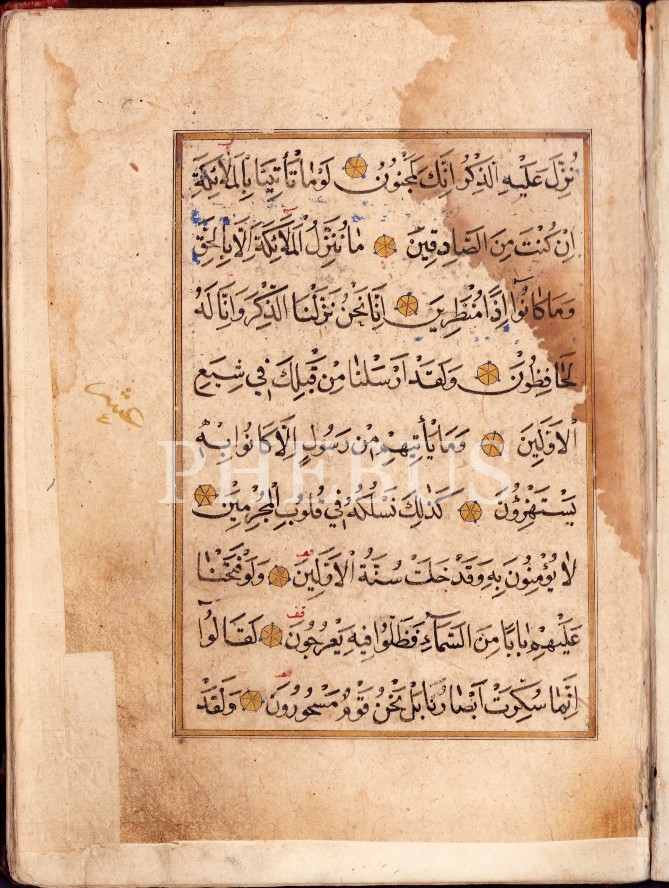 نُزِّلَ عَلَيْهِ الذِّكْرُ اِنَّكَ لَمَجْنُونٌ لَوْمَا تَأْتِينَا بِالْمَلَائِكَةِ
اِنْ كُنْتَ مِنَ الصَّادِقِينَ مَا نُنَزِّلُ الْمَلَائِكَةَ اِلَّا بِالْحَقِّ
وَمَا كَانُوا اِذًا مُنْظَرِينَ اِنَّا نَحْنُ نَزَّلْنَا الذِّكْرَ وَاِنَّا لَهُ
لَحَافِظُونَ وَلَقَدْ اَرْسَلْنَا مِنْ قَبْلِكَ فِي شِيَعِ
الْاَوَّلِينَ وَمَا يَأْتِيهِمْ مِنْ رَسُولٍ اِلَّا كَانُوا بِهِ
يَسْتَهْزِؤُنَ كَذَلِكَ نَسْلُكُهُ فِي قُلُوبِ الْمُجْرِمِينَ
لَا يُؤْمِنُونَ بِهِ وَقَدْ خَلَتْ سُنَّةُ الْاَوَّلِينَ وَلَوْ فَتَحْنَا
عَلَيْهِمْ بَابًا مِنَ السَّمَاءِ فَظَلُّوا فِيهِ يَعْرُجُونَ لَقَالُوا
اِنَّمَا سُكِّرَتْ اَبْصَارُنَا بَلْ نَحْنُ قَوْمٌ مَسْحُورُونَ وَلَقَدْ
PHEBUS